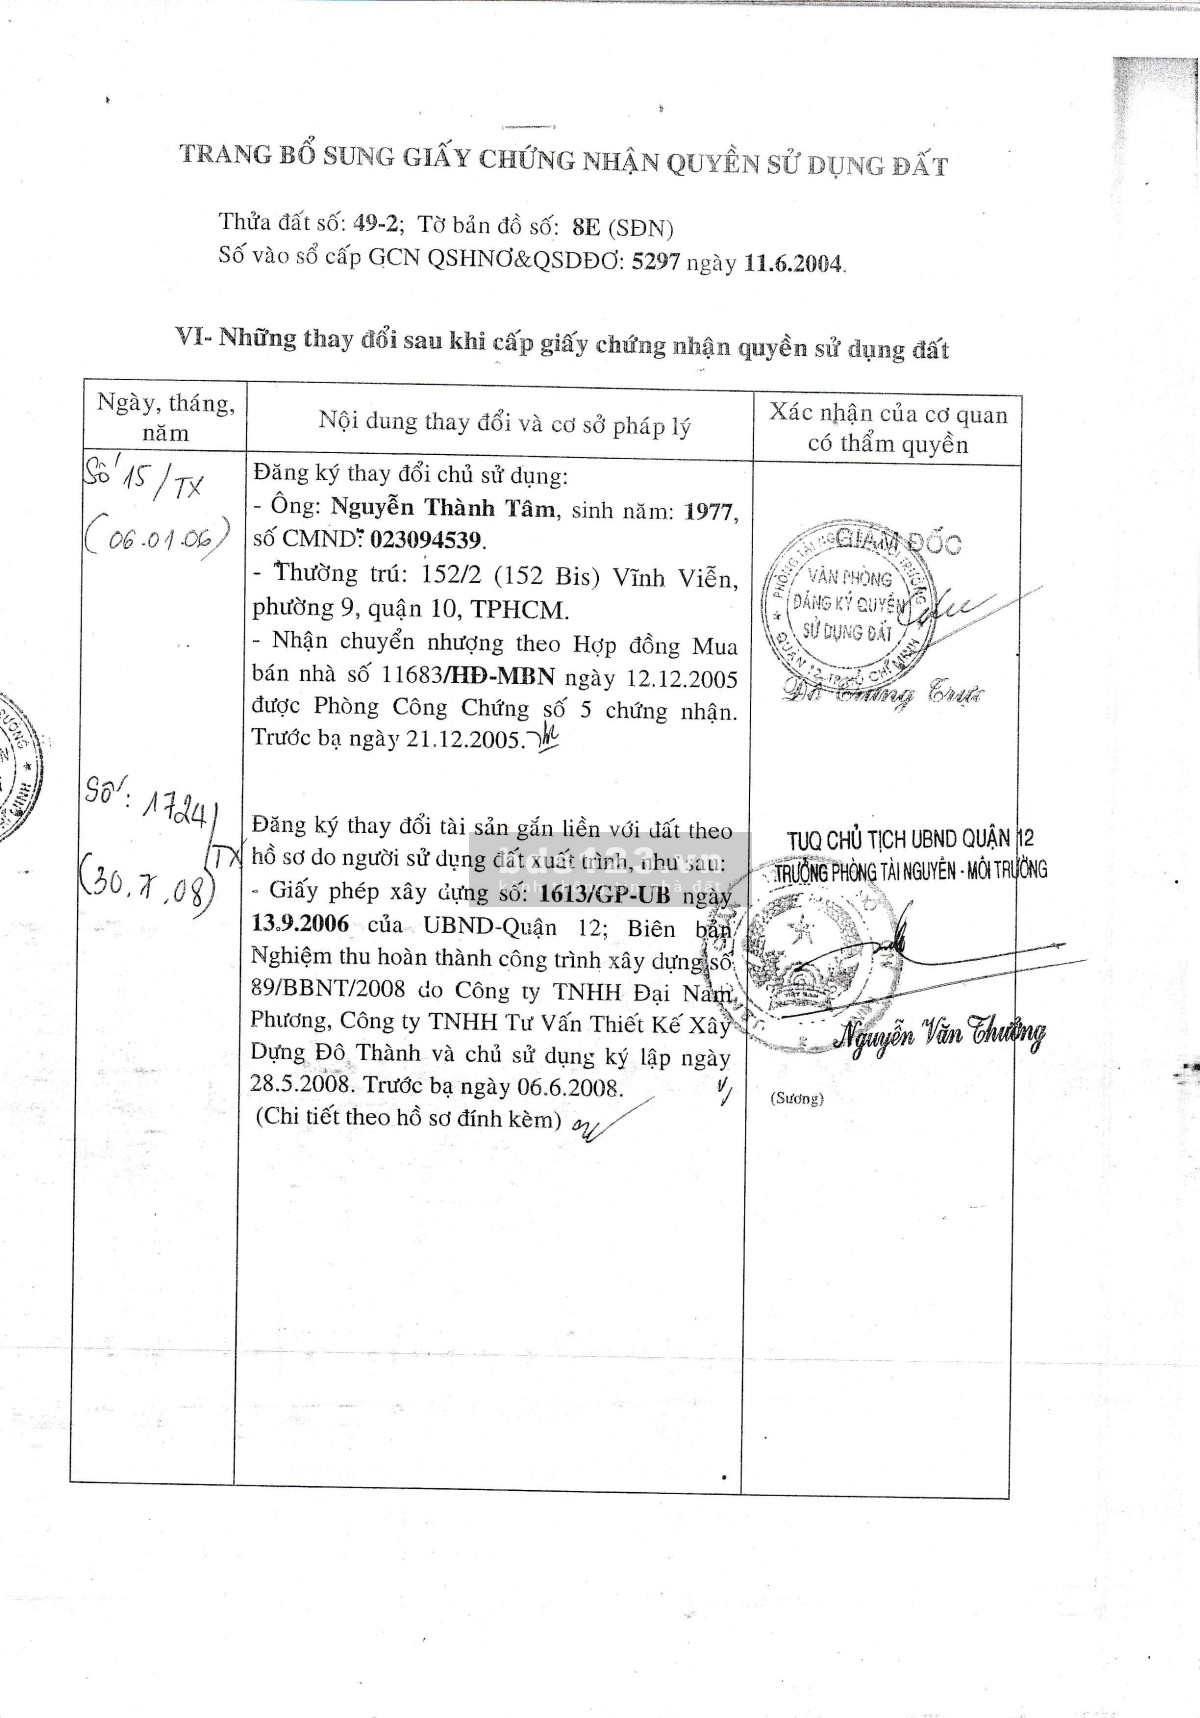 TRANG BỔ SUNG GIẤY CHỨNG NHẬN QUYỀN SỬ DỤNG ĐẤT
Thửa đất số: 49-2; Tờ bản đồ số: 8E (SĐN)
Số vào sổ cấp GCN QSHNƠ&QSDĐƠ: 5297 ngày 11.6.2004.
VI- Những thay đổi sau khi cấp giấy chứng nhận quyền sử dụng đất
Ngày, tháng,
năm
Nội dung thay đổi và cơ sở pháp lý
Xác nhận của cơ quan
có thẩm quyền
Số 15/TX
(06.01.06)
Đăng ký thay đổi chủ sử dụng:
- Ông: Nguyễn Thành Tâm, sinh năm: 1977,
số CMND: 023094539.
- Thường trú: 152/2 (152 Bis) Vĩnh Viễn,
phường 9, quận 10, TPHCM.
- Nhận chuyển nhượng theo Hợp đồng Mua
bán nhà số 11683/HĐ-MBN ngày 12.12.2005
được Phòng Công Chứng số 5 chứng nhận.
Trước bạ ngày 21.12.2005.
GIÁM ĐỐC
VĂN PHÒNG
ĐĂNG KÝ QUYỀN
SỬ DỤNG ĐẤT
QUẬN 12 - TP. HỒ CHÍ MINH
Đỗ Trung Trực
Số: 1724/
TX
(30.7.08)
Đăng ký thay đổi tài sản gắn liền với đất theo
hồ sơ do người sử dụng đất xuất trình, như sau:
- Giấy phép xây dựng số: 1613/GP-UB ngày
13.9.2006 của UBND-Quận 12; Biên bản
Nghiệm thu hoàn thành công trình xây dựng số
89/BBNT/2008 do Công ty TNHH Đại Nam
Phương, Công ty TNHH Tư Vấn Thiết Kế Xây
Dựng Đô Thành và chủ sử dụng ký lập ngày
28.5.2008. Trước bạ ngày 06.6.2008.
(Chi tiết theo hồ sơ đính kèm)
TUQ CHỦ TỊCH UBND QUẬN 12
TRƯỞNG PHÒNG TÀI NGUYÊN - MÔI TRƯỜNG
Nguyễn Văn Thưởng
(Sương)
bds123.vn